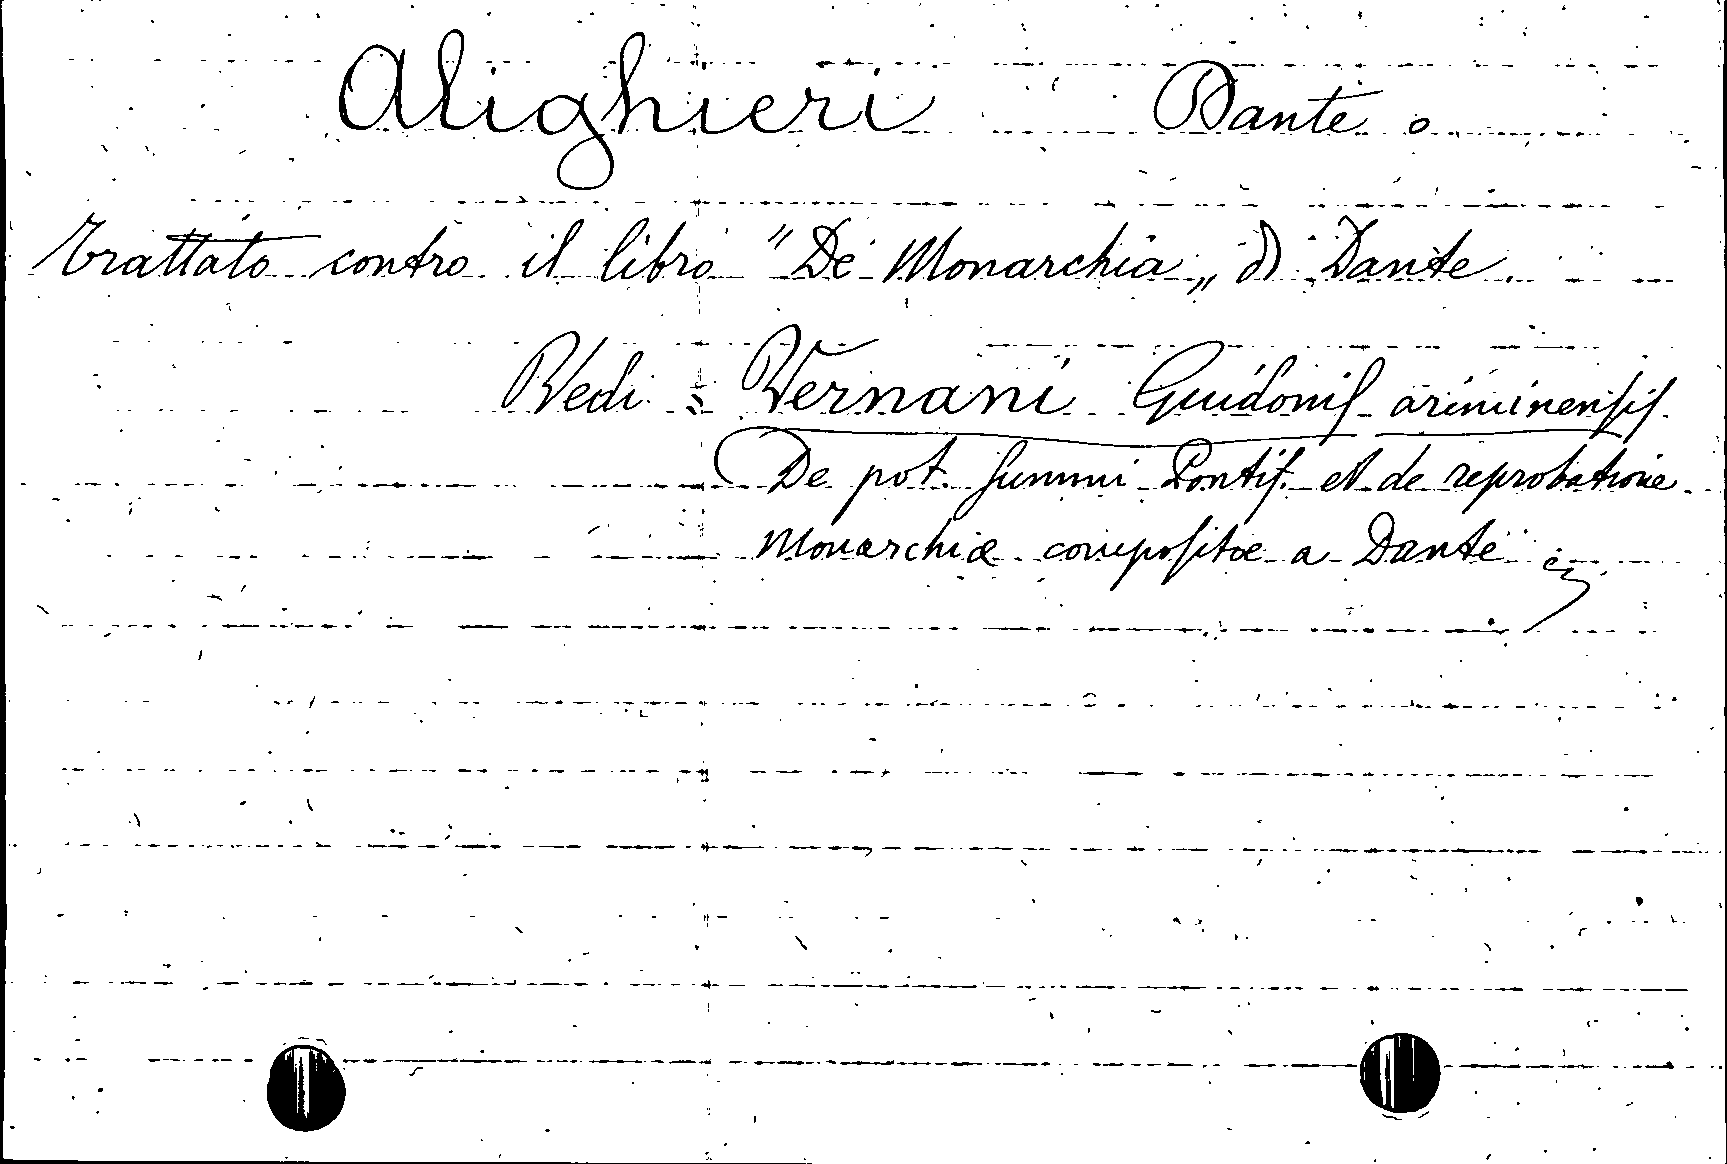 Alighieri Dante
Trattato contro il libro "De Monarchia„ di Dante.
Vedi: Vernani Guidonis ariminensis.
De pot. summi Pontif. et de reprobatione
Monarchiæ compositæ a Dante